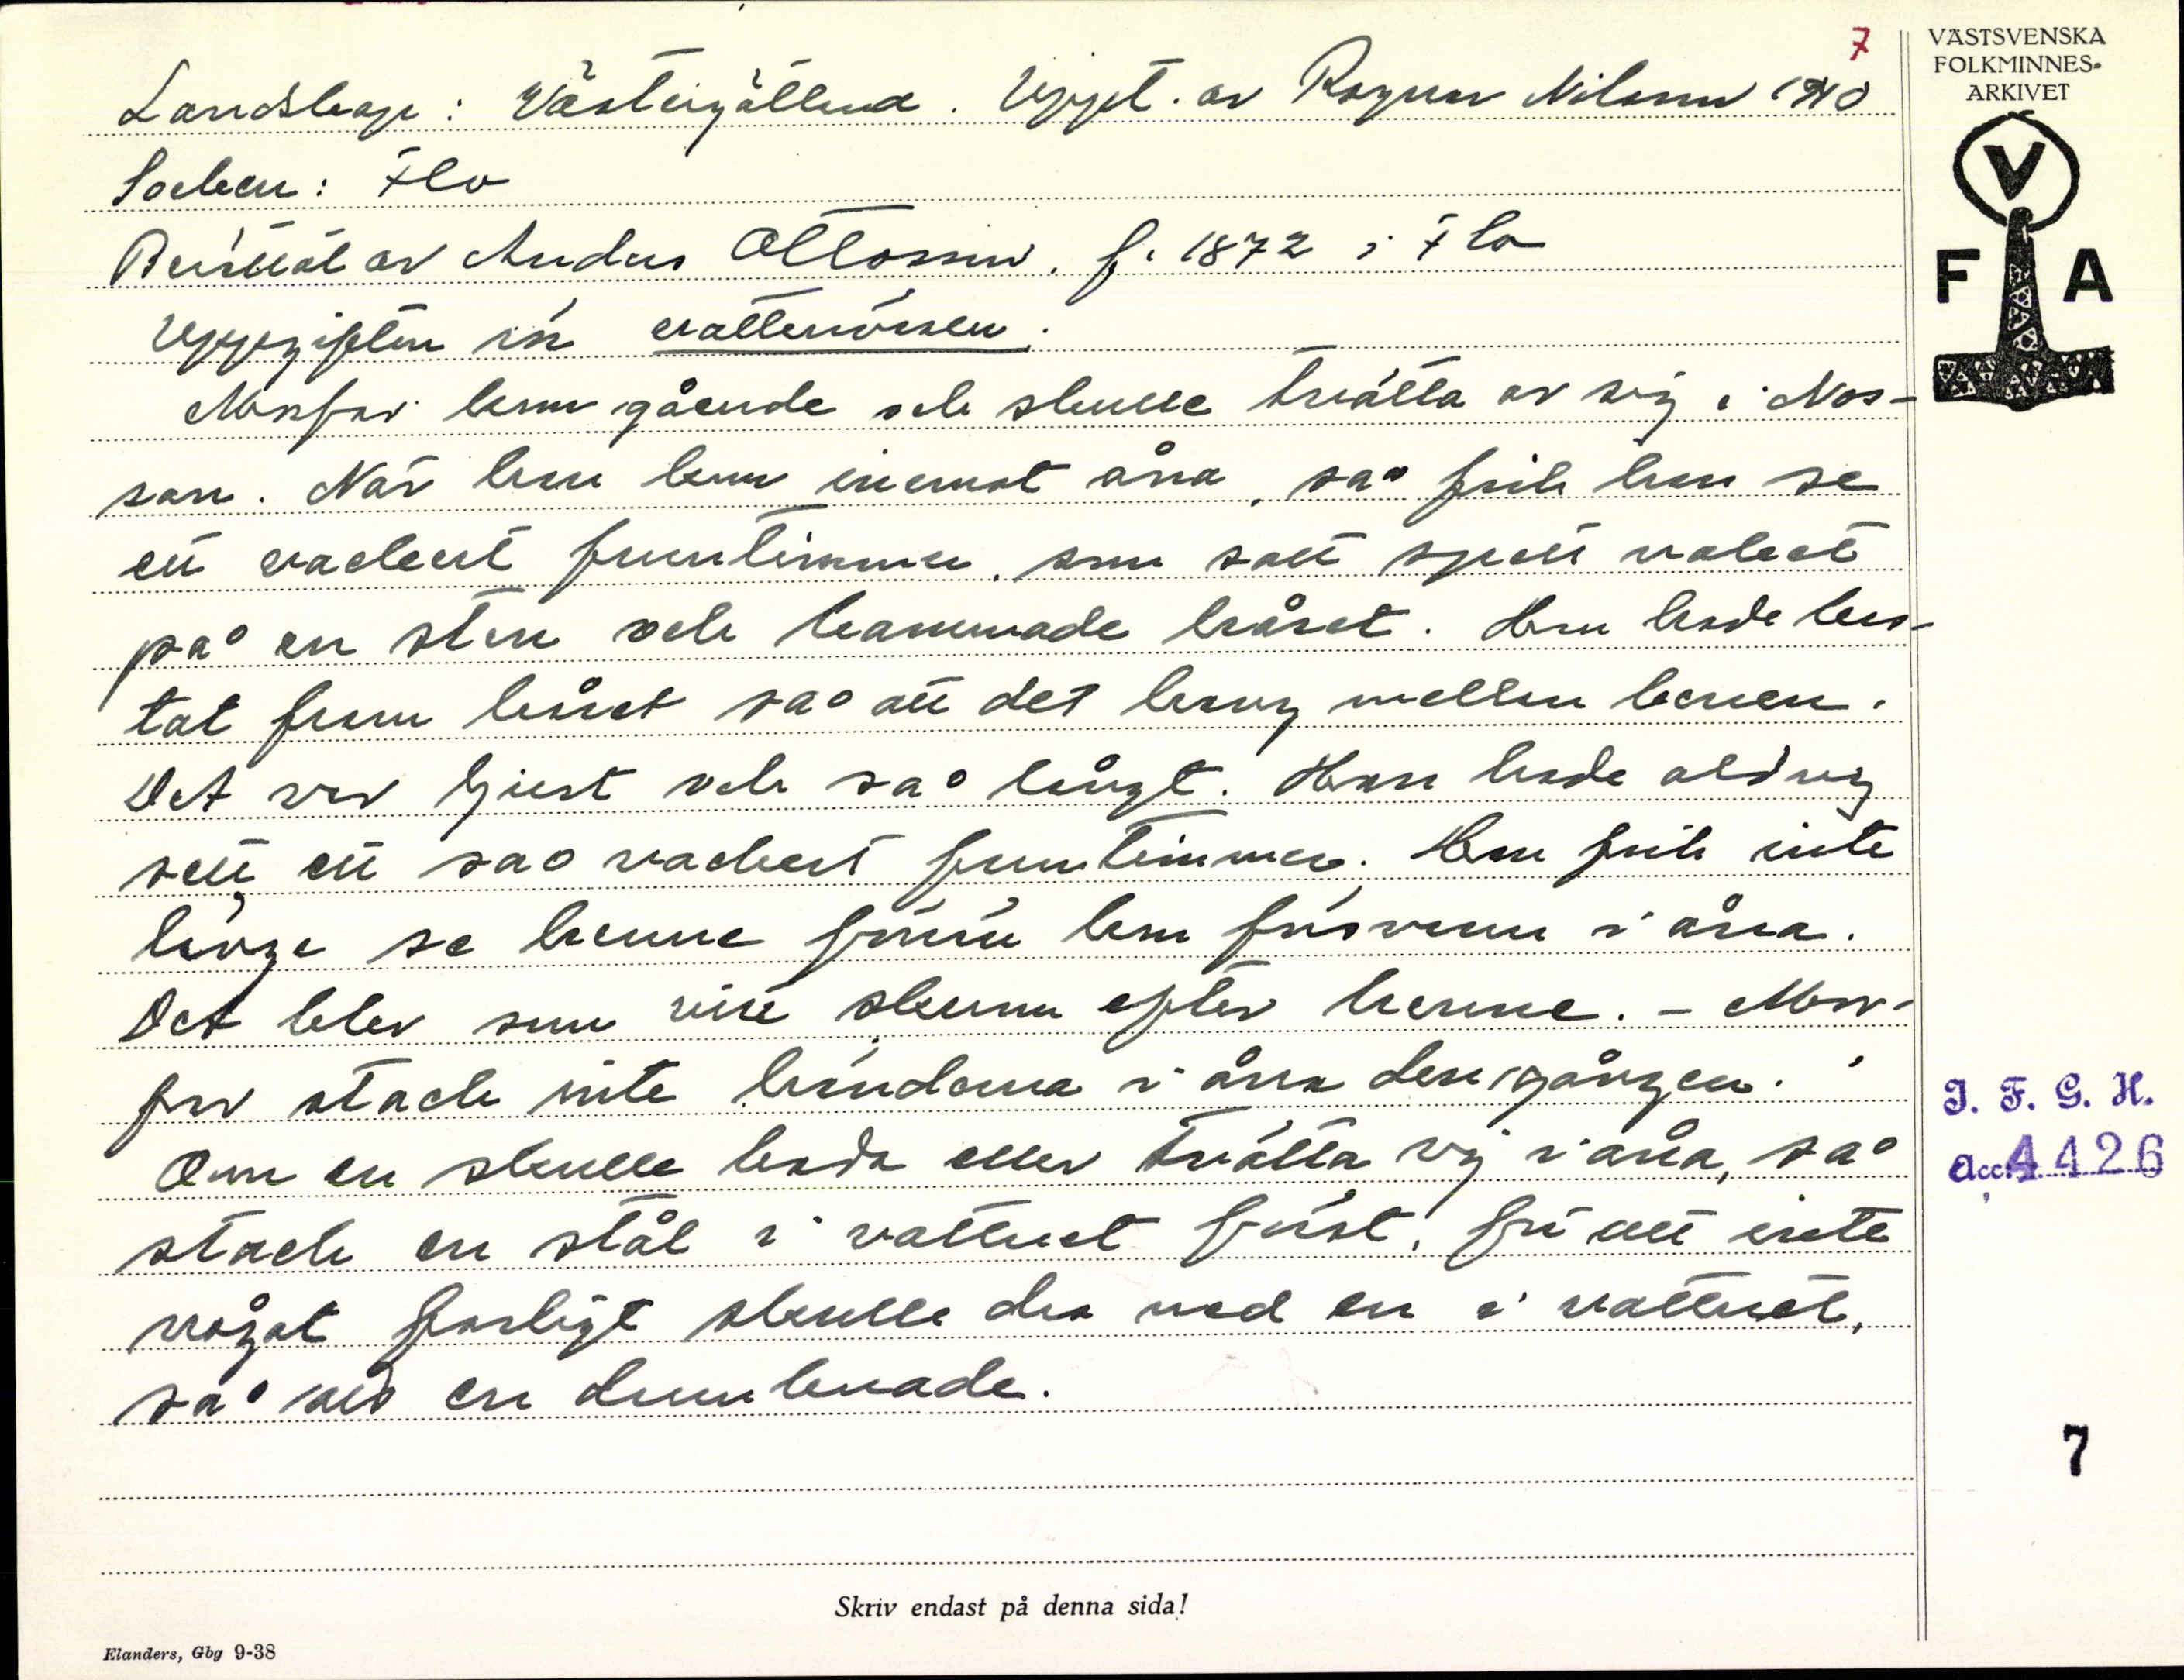 7
VÄSTSVENSKA
FOLKMINNES-
ARKIVET
Landskap: Västergötland. Uppt. av Ragnar Nilsson 1940
Socken: Flo
V
F A
Berättat av Anders Ottosson, f. 1872 i Flo
Uppgiften rör vattenväsen.
Morfar kom gående och skulle tvätta av sig i Nos-
san. När han kom inemot åna, så fick han se
ett vackert fruntimmer, som satt spett naket
på en sten och kammade håret. Hon hade kas-
tat fram håret så att det hang mellan benen.
Det var ljust och så långt. Han hade aldrig
sett ett så vackert fruntimmer. Han fick inte
länge se henne förrn hon försvann i åna.
Det blev som vitt skum efter henne. - Mor-
far stack inte händerna i åna den gången.
Om en skulle bada eller tvätta sig i åna, så
stack en stål i vattnet först, för att inte
något farligt skulle dra ned en i vattnet,
så att en drunknade.
I. F. G. H.
Acc. 4426
7
Skriv endast på denna sida!
Elanders, Gbg 9-38